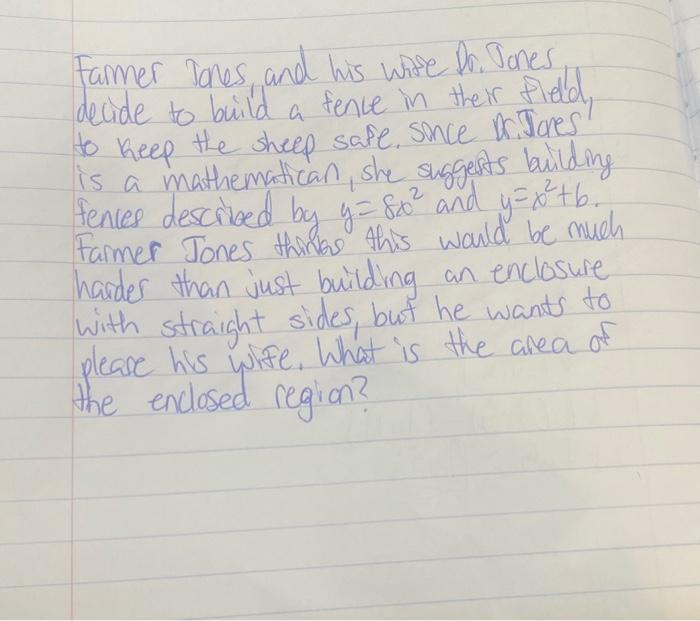 Farmer Jones, and his wife Dr. Jones,
decide to build a fence in their field,
to keep the sheep safe. Since Dr. Jones
is a mathematican, she suggests building
fences described by y=8x² and y=x²+6.
Farmer Jones thinks this would be much
harder than just building an enclosure
with straight sides, but he wants to
please his wife. What is the area of
the enclosed region?